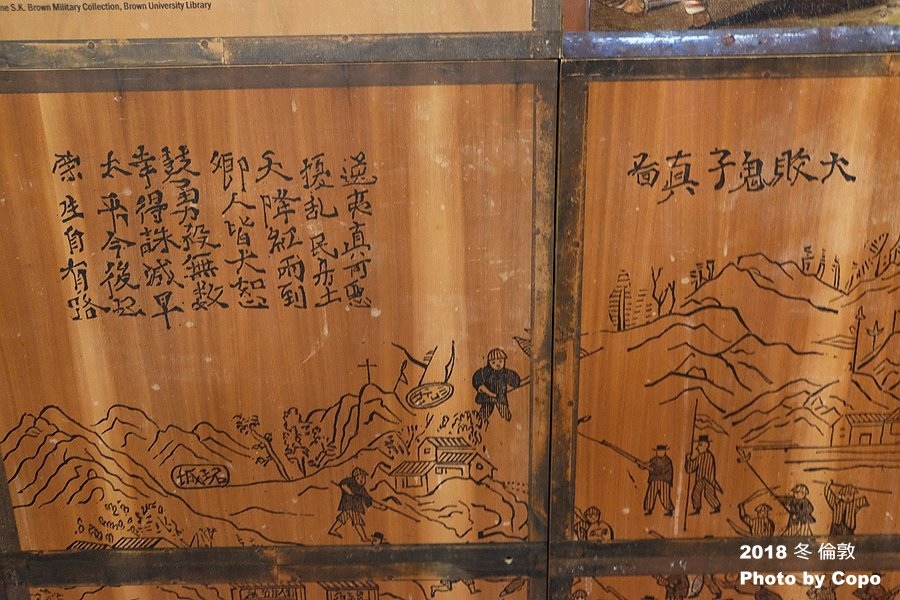 ne S.K. Brown Military Collection, Brown University Library
大敗鬼子真啚
逆夷真可惡
擾乱民丹土
天降紅雨到
鄉人皆大怒
鼓勇殺無数
幸得誅滅早
太平今後起
生自有路
2018 冬 倫敦
Photo by Copo